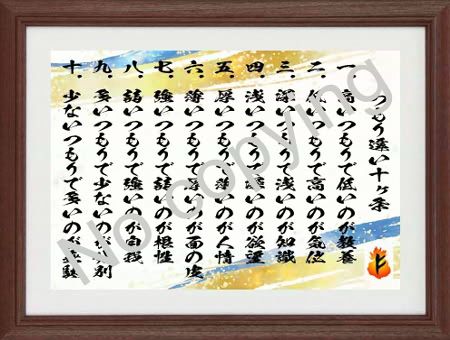 つもり違い十ヶ条
一、高いつもりで低いのが教養
二、低いつもりで高いのが気位
三、深いつもりで浅いのが知識
四、浅いつもりで深いのが欲望
五、厚いつもりで薄いのが人情
六、薄いつもりで厚いのが面の皮
七、強いつもりで弱いのが根性
八、弱いつもりで強いのが自我
九、多いつもりで少ないのが分別
十、少ないつもりで多いのが無駄
No copying